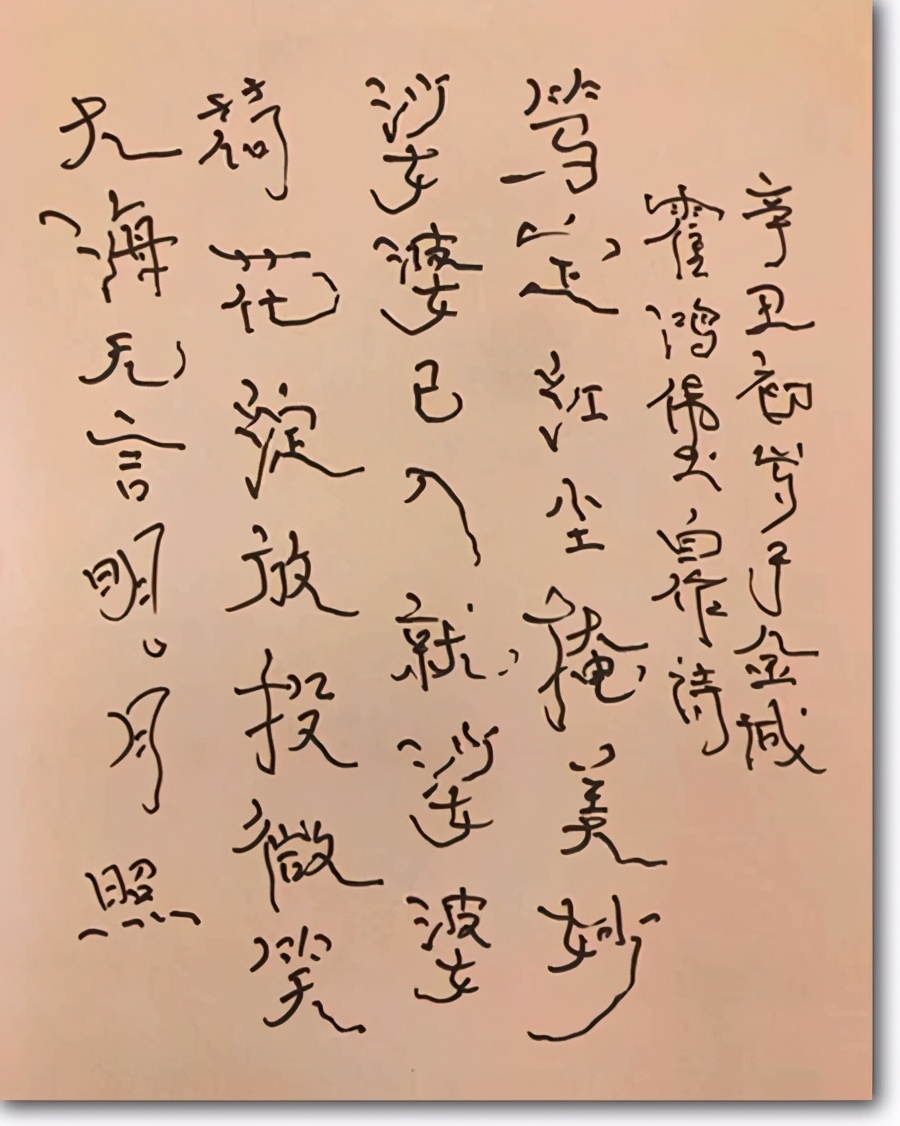 辛丑初岁于金城
霍鸿书自作诗
笃定红尘掩美妙
娑婆已入就娑婆
荷花绽放投微笑
大海无言明月照